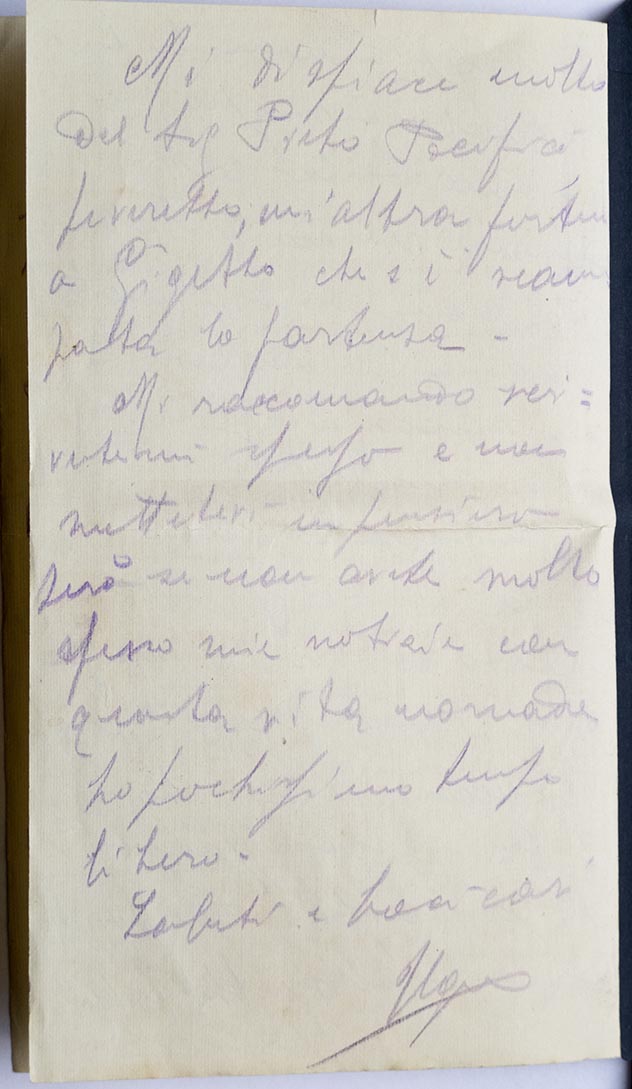 Mi dispiace molto
del sig Pietro Pacifici
poveretto, un'altra fortuna
a Gigetto che s'è scam
pata la partenza -
Mi raccomando scri=
vetemi spesso e non
mettetevi in pensiero
però se non avete molto
spesso mie notizie con
questa vita nomade
ho pochissimo tempo
libero -
Saluti e baci cari